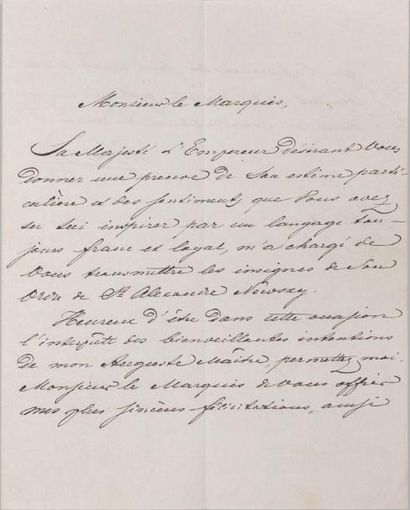 Monsieur le Marquis,
Sa Majesté l'Empereur désirant Vous
donner une preuve de Son estime parti-
culière et des sentiments que Vous avez
su Lui inspirer par un langage tou-
jours franc et loyal, m'a chargé de
Vous transmettre les insignes de Son
Ordre de St Alexandre Newsky.
Heureux d'être dans cette occasion
l'interprète des bienveillantes intentions
de mon Auguste Maître, permettez moi,
Monsieur le Marquis de Vous offrir
mes plus sincères félicitations, ainsi